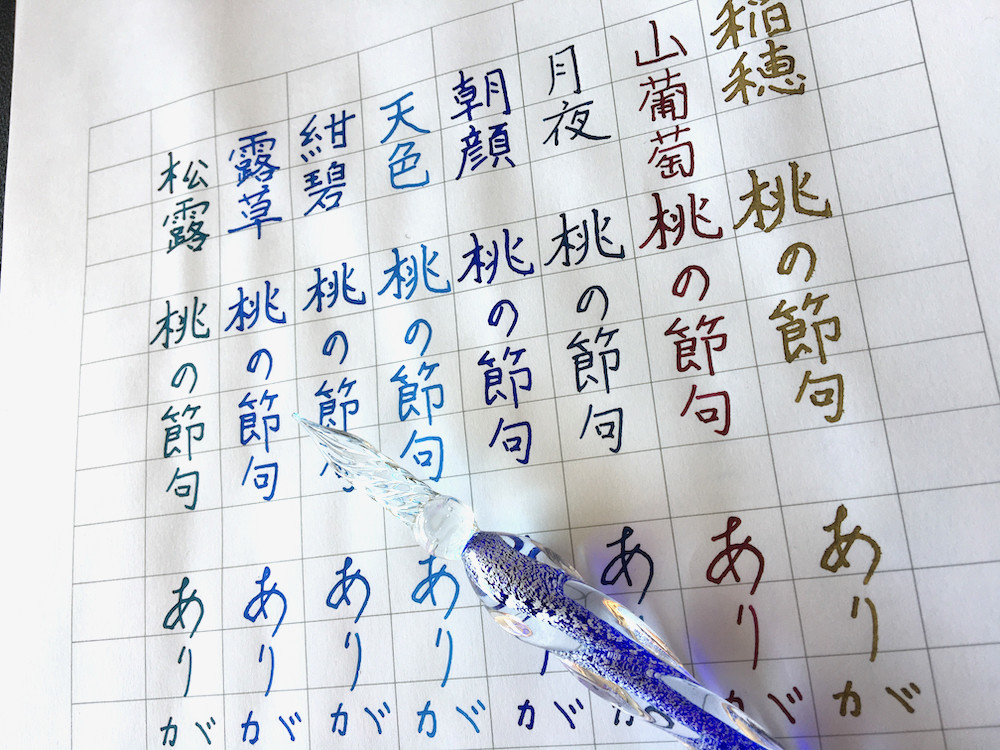 稲穂 桃の節句 ありが
山葡萄 桃の節句 ありが
月夜 桃の節句 あ
朝顔 桃の節句 が
天色 桃の節句 ありが
紺碧 桃の節 ありが
露草 桃の節句 ありが
松露 桃の節句 ありが